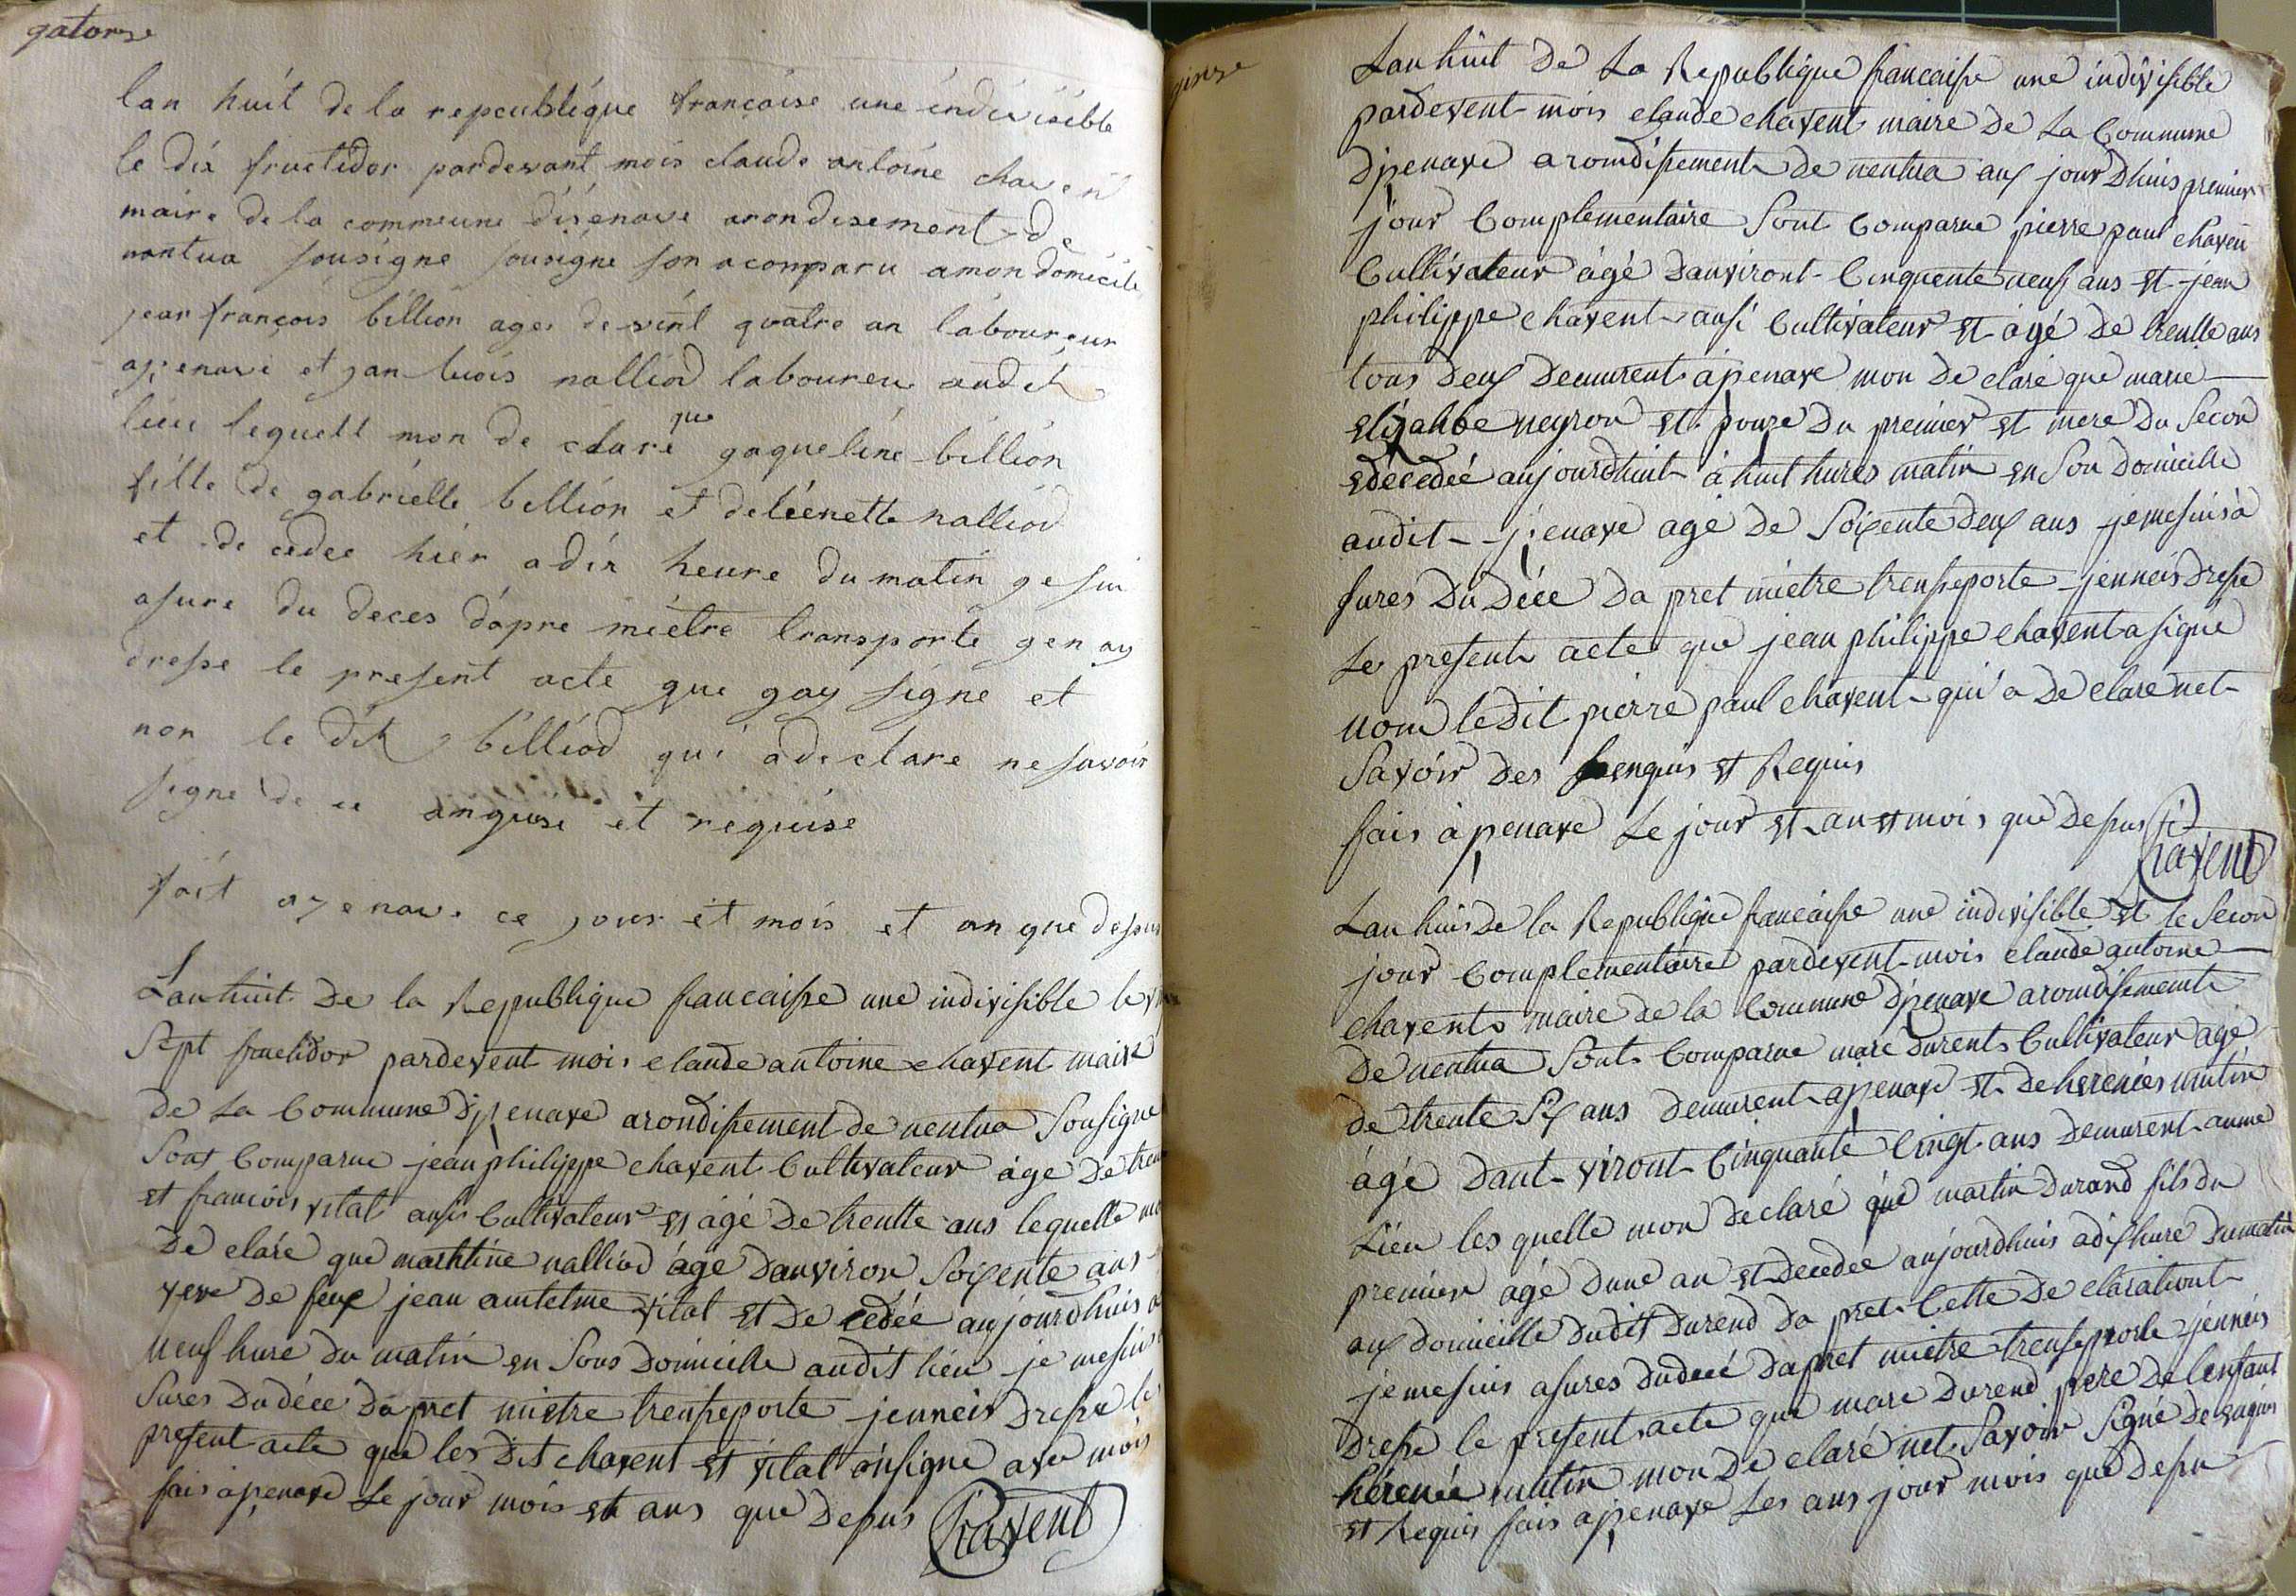 gatorse
lan huit de la repeublique françoise une indivisible
le dix fructidor pardevant mois claude antoine chavent
maire de la commeune disenave arondisement de
nantua sousigne sousigne son acomparu a mon domicile
jean françois billion ages de vint quatre an laboureur
et jan luois nalliod laboureu audit
lieu lequell mon de claré que gaqueline billion
fille de gabrielle billion et de nalliod
et de cedee hier a dix heure du matin ge sui
asure du deces dapre miètre transporte gen ay
dresse le present acte que gay signe et
non le dit billiod qui a declare ne savoir
signe de ce anquise et requise
fait ce jour et mois et an que dessus
Lan huit De la Republique francaisse une indivisible le
Sept fructidor pardevent mois claude antoine chavent maire
de La Commune Disenave arondissement de nentua Sousigne
Sont Comparue jean philippe chavent Cultivateur âge De
et francois vital aussi Cultivateur et âgé De trentte ans lequelle
De claré que marhtine nalliod âgé Danviron Soixente ans
veve De feux jean amtelme vital et De cedée aujourdhuis a
neuf hure du matin en Sons Domicille audit lieu je mesuis
sures Du déce Da pret mietre trensseporte jenneis Dresse le
present acte que les Dit chavent et vital onsigne avec mois
fais a isenave Le jour mois et ans que Desus Chavent
Lan huit De La Republique francaisse une indivisible
pardevent mois claude chavent maire De La Commune
Disenave arondissement De nentua aux jour Dhuis premier
jour Complementaire Sont Comparue pierre paul chavent
Cultivateur âgé Danviront Cinquente neuf ans et jean
philippe chavent ausi Cultivateur et âgé De trentte ans
tous Deux Deumrent a isenave mon De claré que marie
elizahbe neyron et pouze Du premier et mere Du Secon
edécedée aujourdhuit à huit hures matin en Son Domicille
audit isenave agé De Soixente Deux ans je mesuis a
sures Du Déce Da pret miètre trensseporte jenneis Dresse
Le present acte que jean philippe chavent a signe
nom ledit pierre paul chavent qui a De claré net
Savoir Des enquis et Requis
fais a isenave Le jour et an et mois que Desus
Chavent
Lan huis De la Republique francaisse une indivisible et le Secon
jour Complementaire pardevent mois claude antoine
chavent maire de la Commune Disenave arondissement
De nentua Sont Comparue marc Durent Cultivateur agé
De trente Six ans Demurent a isenave et De herenée mutin
âgé Dant viront Cinquante Cingt ans Demurent aume
Lieu les quelle mon Declaré que martin Durand fils du
premier âgé Dune an et Decedée aujourdhuis a dix hure Dumatin
aux Domicille Dudit Durend Da pret Cette De claratiout
je mesuis asures Dudecé Dapret mietre trensseporte jenneis
Dresse le present acte que marc Durend pere De lenfant
hérenée mutin mon De claré net Savoir Signé De enquis
et Requis fais a isenave Les ans jour mois que Desu